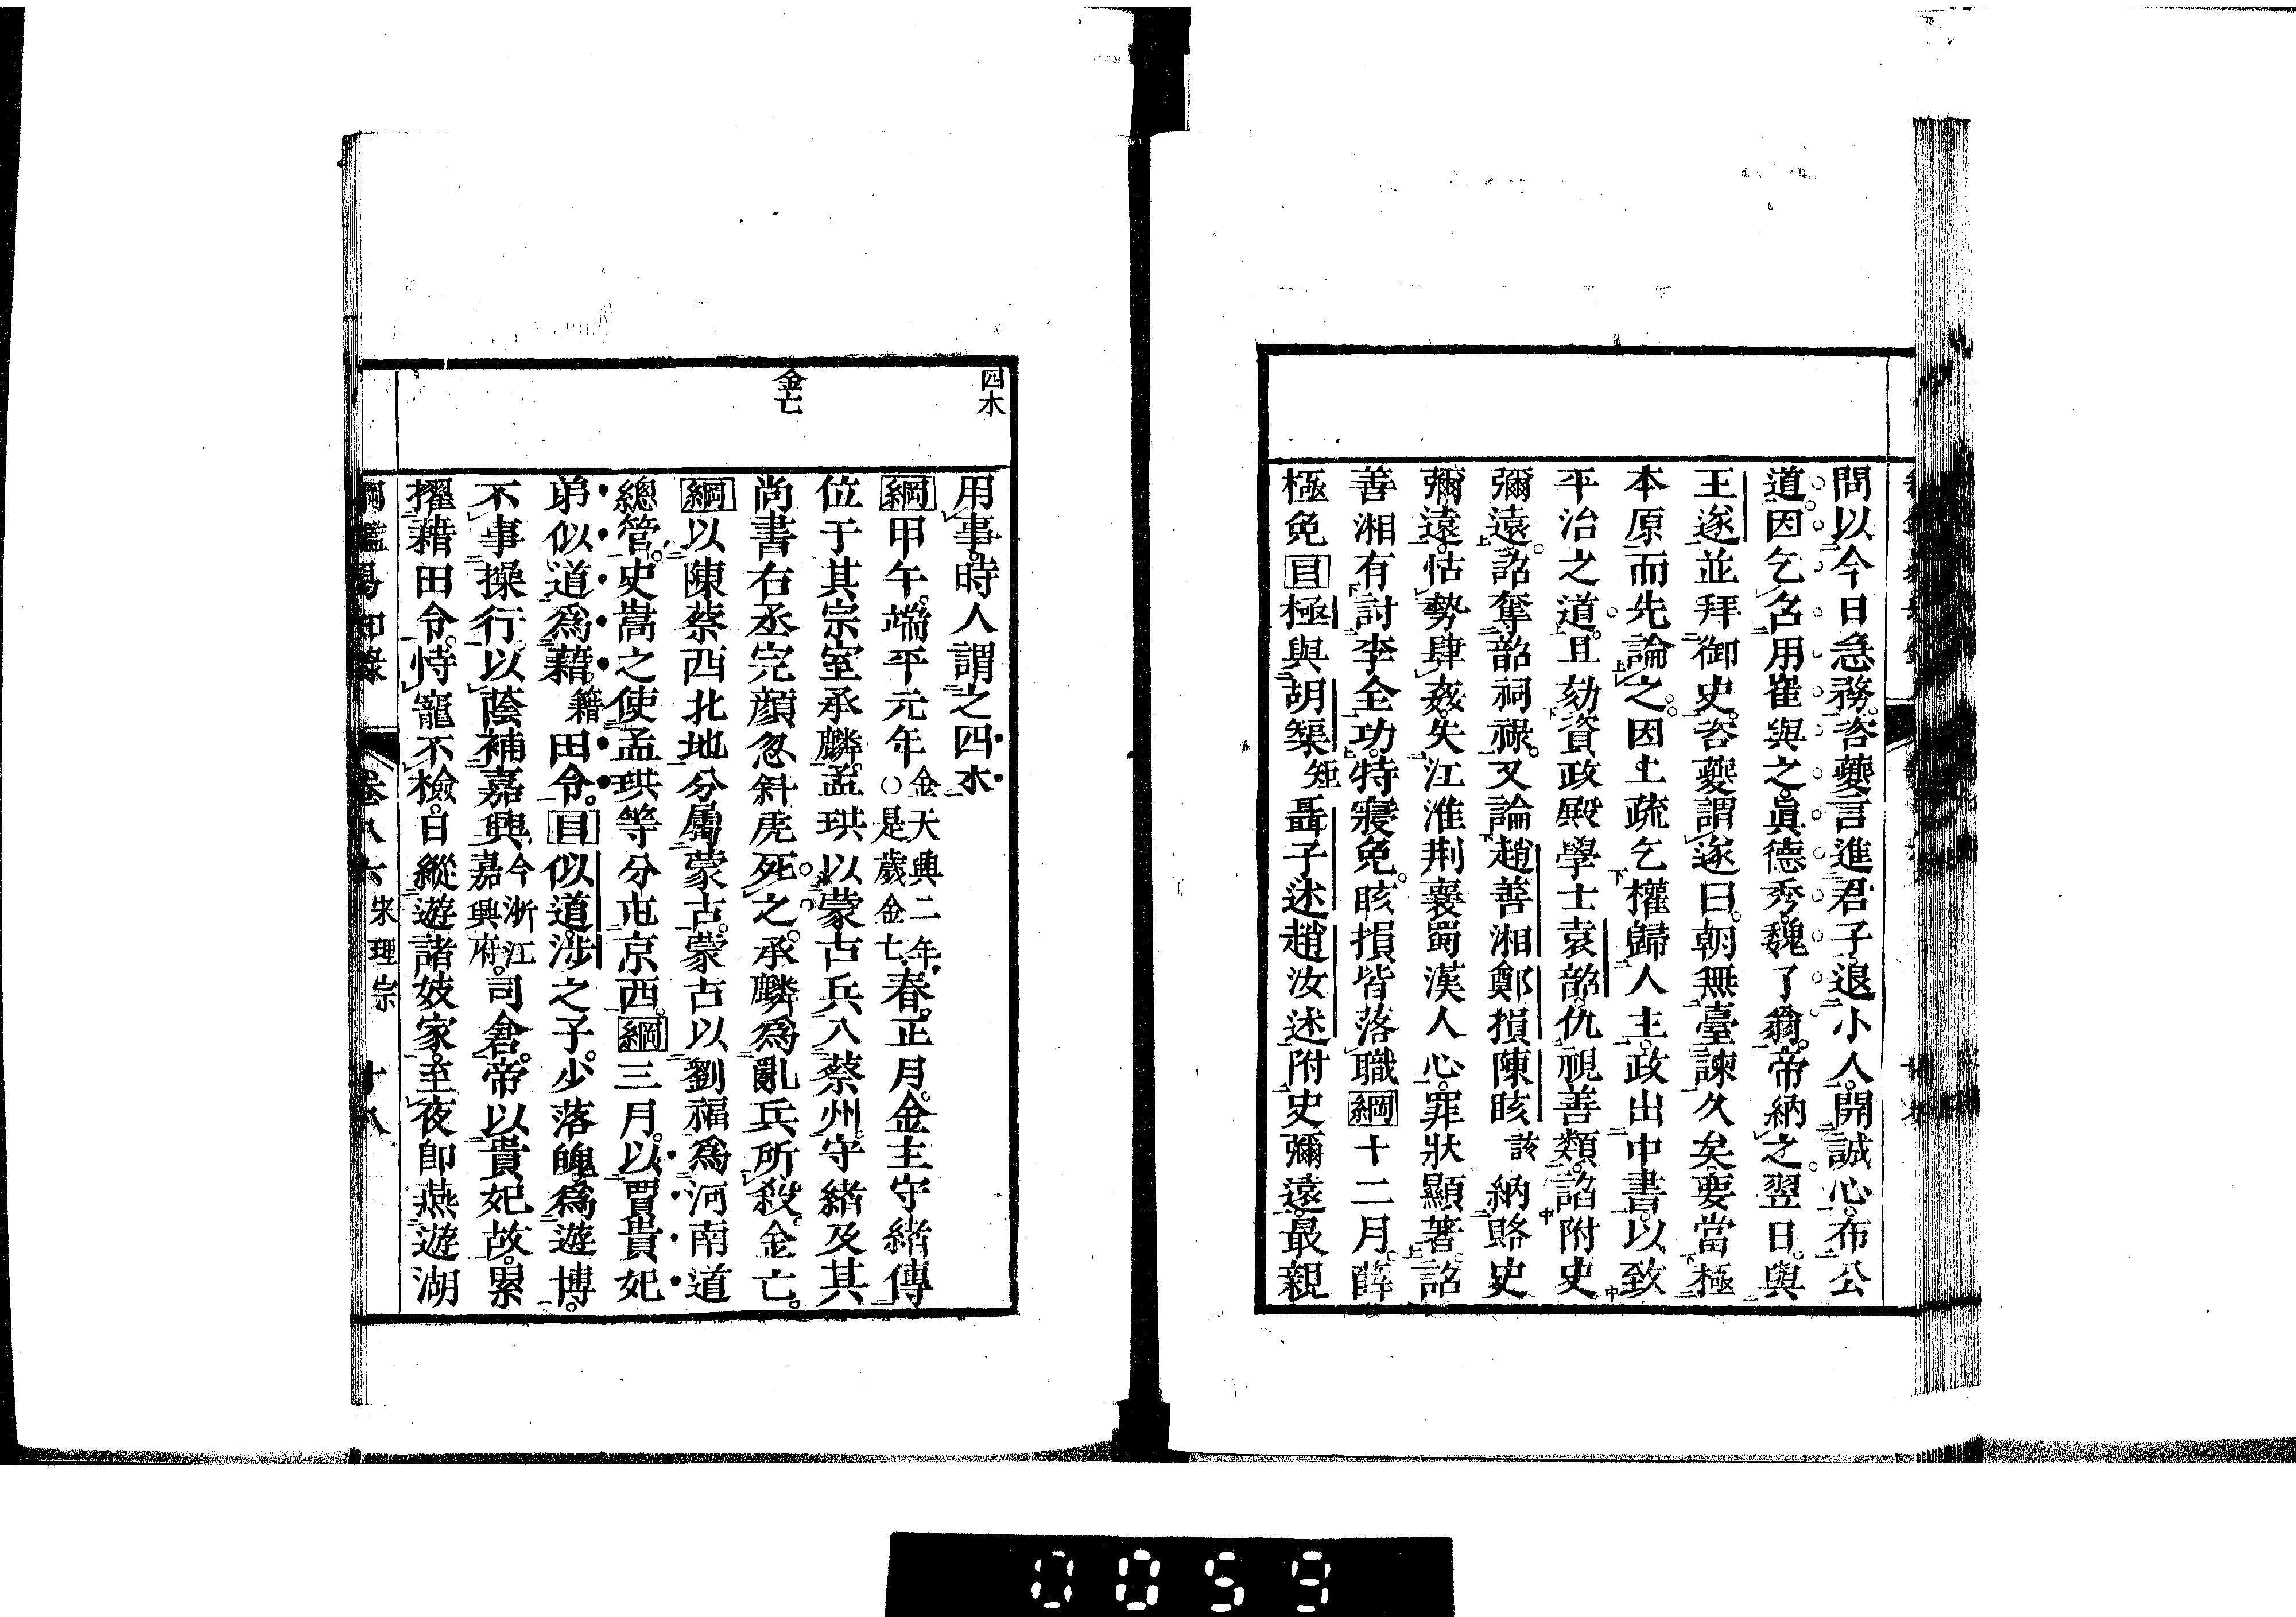 問以今日急務。咨夔言進君子退小人。開誠心。布公
道。因乞召用崔與之。眞德秀。魏了翁。帝納之。翌日。與
王遂並拜御史。咨夔謂遂曰。朝無臺諫久矣。要當極
本原而先論之。因上疏乞權歸人主。政出中書。以致
平治之道。且劾資政殿學士袁韶。仇視善類。諂附史
彌遠。詔奪韶祠祿。又論趙善湘鄭損陳晐該納賂史
彌遠。怙勢肆姦。失江淮荆襄蜀漢人心。罪狀顯著。詔
善湘有討李全功。特寢免。晐損皆落職綱十二月。薛
極免目極與胡榘矩聶子述趙汝述附史彌遠。最親
四木
金亡
用事。時人謂之四木
綱甲午。端平元年金天興二年、〇是歲金亡、春。正月。金主守緒傳
位于其宗室承麟。孟珙以蒙古兵入蔡州。守緒及其
尚書右丞完顏忽斜虎死之。承麟爲亂兵所殺。金亡。
綱以陳蔡西北地分屬蒙古。蒙古以劉福爲河南道
總管。史嵩之使孟珙等分屯京西。綱三月。以賈貴妃
弟似道爲藉籍田令。目似道。涉之子。少落魄。爲遊博。
不事操行。以蔭補嘉興、今浙江嘉興府。司倉。帝以貴妃故。累
擢藉田令。恃寵不檢。日縱遊諸妓家。至夜卽燕遊湖
綱鑑易知錄 卷八六 宋理宗 十八
0059